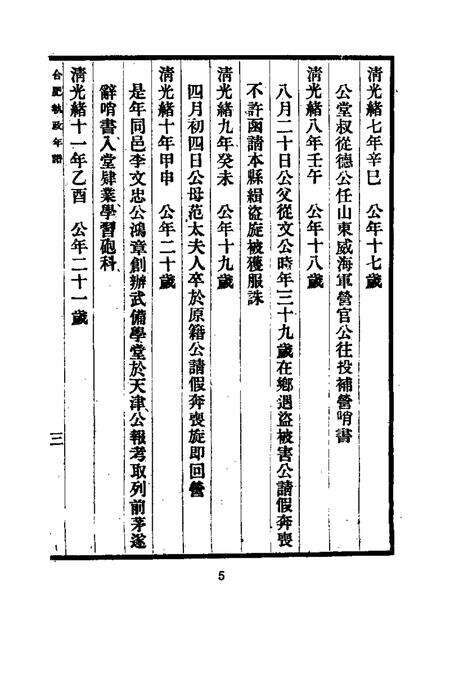 清光緒七年辛巳　公年十七歲
公堂叔從德公任山東威海軍營官公往投補營哨書
清光緒八年壬午　公年十八歲
八月二十日公父從文公時年三十九歲在鄉遇盜被害公請假奔喪
不許函請本縣緝盜旋被獲服誅
清光緒九年癸未　公年十九歲
四月初四日公母范太夫人卒於原籍公請假奔喪旋即回營
清光緒十年甲申　公年二十歲
是年同邑李文忠公鴻章創辦武備學堂於天津公報考取列前茅遂
辭哨書入堂肄業學習砲科
清光緒十一年乙酉　公年二十一歲
合肥執政年譜
三
5